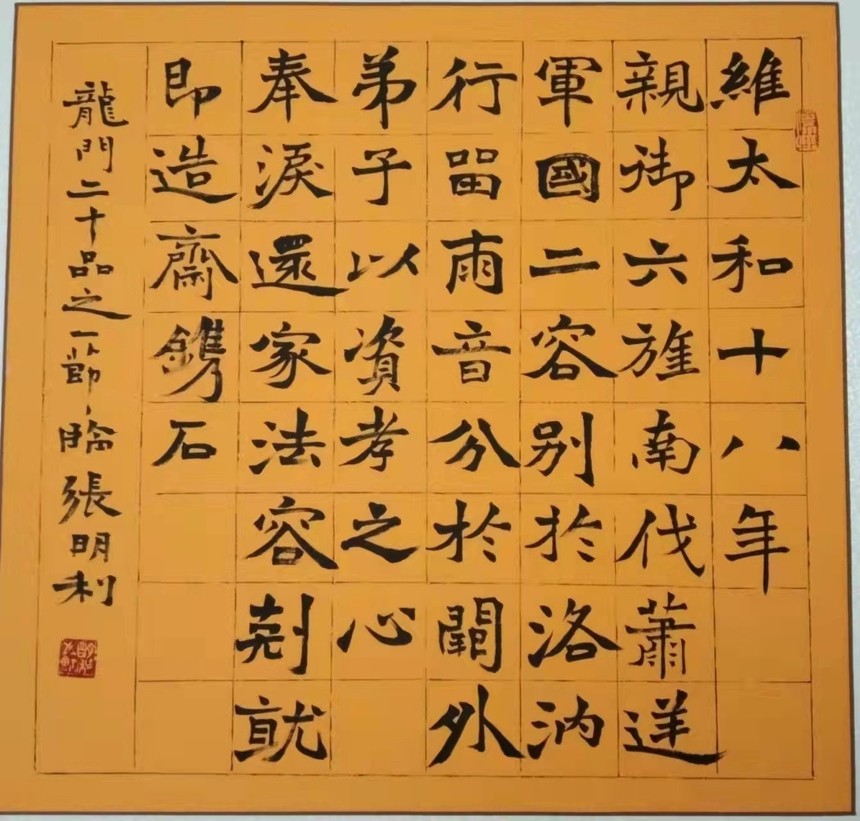 維太和十八年
親御六旌南伐蕭逆
軍國二容别於洛汭
行留雨音分於闕外
弟子以資孝之心
奉淚還家法容剋就
即造齋鐫石
龍門二十品之一節、臨張明利